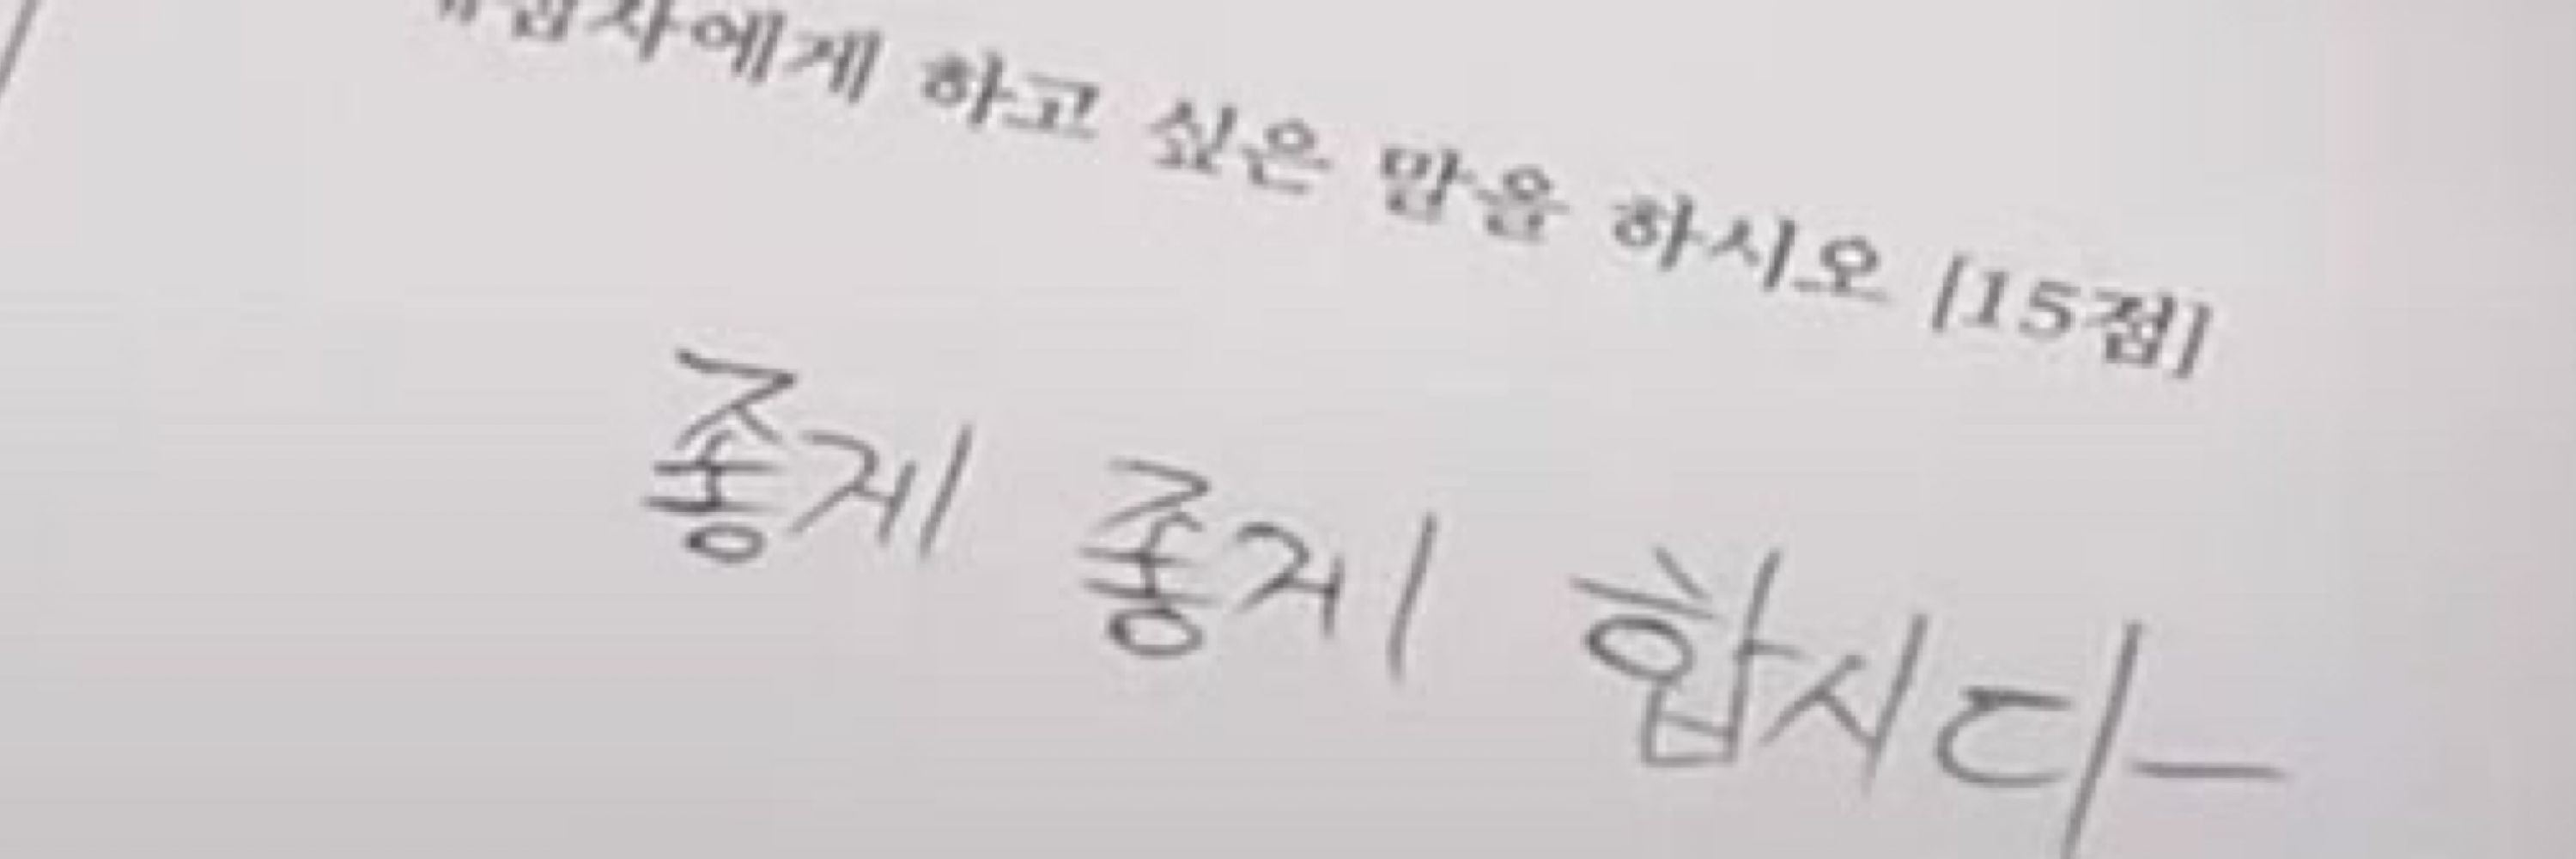 하고 싶은 말을 하시오 [15점]
좋게 좋게 합시다